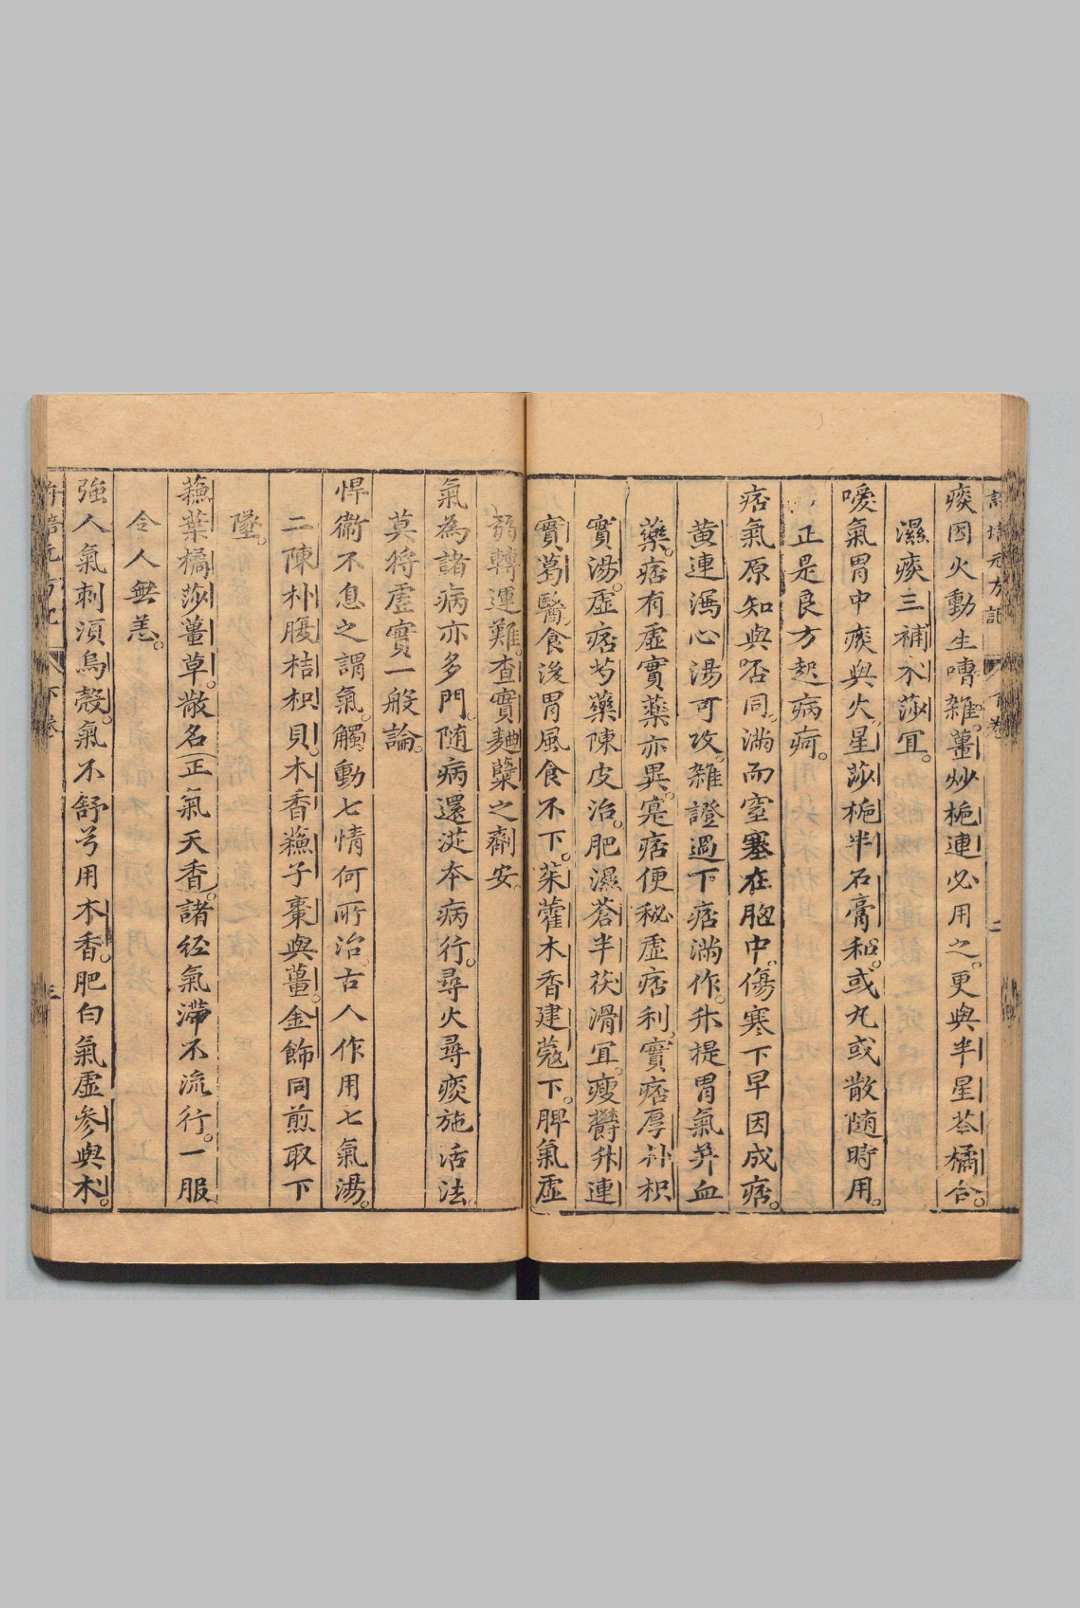 痰因火動生嘈雜薑炒梔連必用之更與半星苓橘合
濕痰三補朮莎宜
噯氣胃中痰與火星莎梔半石膏和或丸或散隨時用
正是良方起病疴
痞氣原知與否同滿而窒塞在胸中傷寒下早因成痞
黄連瀉心湯可攻雜證過下痞滿作升提胃氣并血
藥痞有虛實藥亦異寔痞便秘虛痞利實痞厚朴枳
實湯虛痞芍藥陳皮治肥濕蒼半茯滑宜瘦欝升連
實葛醫食後胃風食不下茱藿木香建蔻下脾氣虛
弱轉運難查實麯櫱之齋安
氣為諸病亦多門随病還從本病行尋火尋痰施活法
莫将虛實一般論
悍衞不息之謂氣觸動七情何所治古人作用七氣湯
二陳朴腹桔枳貝木香蘓子棗與薑金飾同煎取下
墜
蘓葉橘莎薑草散名正氣天香諸经氣滯不流行一服
令人無恙
強人氣刺須烏殼氣不舒兮用木香肥白氣虛参與朮
下卷
三